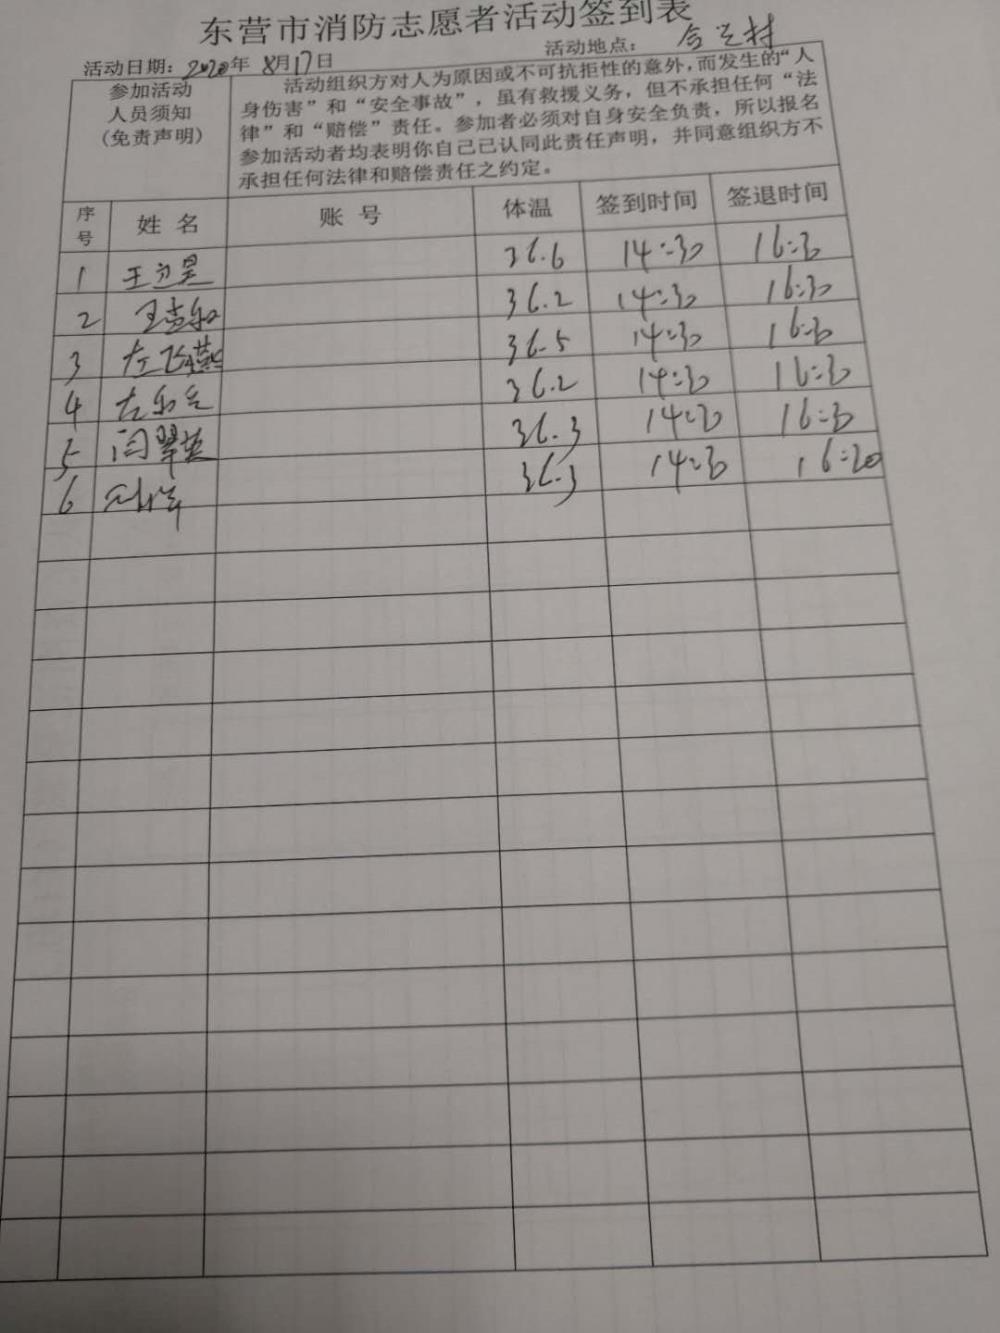 东营市消防志愿者活动签到表
活动日期：2020年 8月17日 活动地点： 合兰村
参加活动
人员须知
（免责声明）
活动组织方对人为原因或不可抗拒性的意外，而发生的“人
身伤害”和“安全事故”，虽有救援义务，但不承担任何“法
律”和“赔偿”责任。参加者必须对自身安全负责，所以报名
参加活动者均表明你自己已认同此责任声明，并同意组织方不
承担任何法律和赔偿责任之约定。
序号 姓 名 账 号 体温 签到时间 签退时间
1 36.6 14:30 16:30
2 36.2 14:30 16:30
3 左飞燕 36.5 14:30 16:30
4 36.2 14:30 16:30
5 闫翠英 36.3 14:30 16:30
6 36.3 14:30 16:20